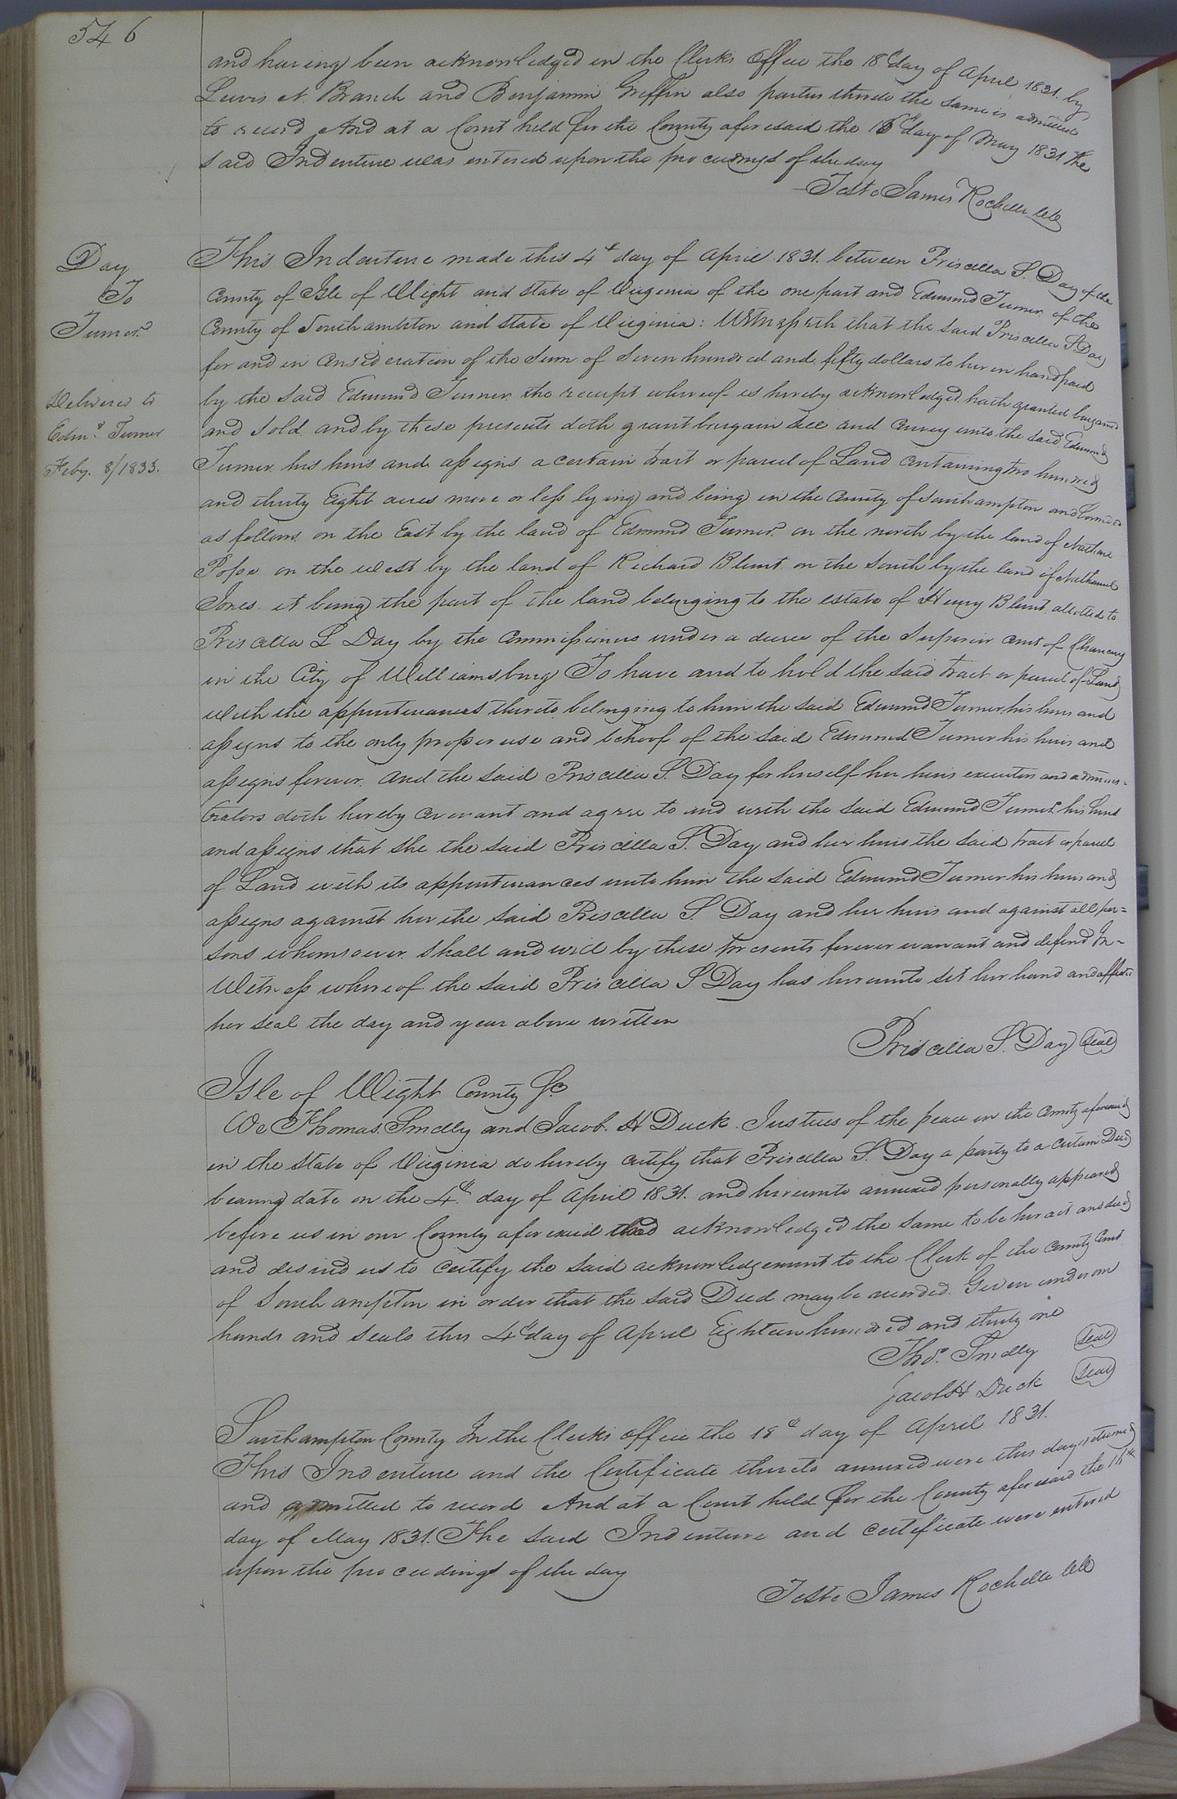 546
and having been acknowledged in the Clerks Office the 18th day of April 1831. by
Lewis N. Branch and Benjamin Griffin also parties thereto the same is admitted
to record And at a Court held for the County aforesaid the 16th day of May 1831 the
said Indenture was entered upon the proceedings of the day
Teste James Rochelle Clk
Day
To
Turner
Delivered to
Edmd. Turner
Feby. 8/1833.
This Indenture made this 4th day of April 1831. between Priscilla S. Day of the
County of Isle of Wight and State of Virginia of the one part and Edmund Turner of the
County of Southampton and State of Virginia: Witnesseth that the said Priscilla S Day
for and in consideration of the sum of Seven hundred and fifty dollars to her in hand paid
by the said Edmund Turner the receipt whereof is hereby acknowledged hath granted bargained
and sold and by these presents doth grant bargain sell and convey unto the said Edmund
Turner his heirs and assigns a certain tract or parcel of Land containing two hundred
and thirty Eight acres more or less lying and being in the County of Southampton and bounded
as follows on the East by the land of Edmund Turner on the north by the land of
Pope on the west by the land of Richard Blunt on the South by the land of Nathaniel
Jones it being the part of the land belonging to the estate of Henry Blunt allotted to
Priscilla S Day by the Commissioners under a decree of the Superior Court of Chancery
in the City of Williamsburg To have and to hold the said tract or parcel of Land
with the appurtenances thereto belonging to him the said Edmund Turner his heirs and
assigns to the only proper use and behoof of the said Edmund Turner his heirs and
assigns forever. And the said Priscilla S. Day for herself her heirs executors and adminis-
trators doth hereby covenant and agree to and with the said Edmund Turner his heirs
and assigns that she the said Priscilla S. Day and her heirs the said tract or parcel
of Land with its appurtenances unto him the said Edmund Turner his heirs and
assigns against her the said Priscilla S. Day and her heirs and against all per=
sons whomsoever shall and will by these presents forever warrant and defend In-
Witness whereof the said Priscilla S Day has hereunto set her hand and affixed
her seal the day and year above written
Priscilla S. Day (Seal)
Isle of Wight County Sc.
We Thomas Smelly and Jacob. H Duck. Justices of the peace in the County aforesaid
in the State of Virginia do hereby certify that Priscilla S. Day a party to a certain Deed
bearing date on the 4th day of April 1831. and hereunto annexed personally appeared
before us in our County aforesaid and acknowledged the same to be her act and deed
and desired us to certify the said acknowledgement to the Clerk of the County Court
of Southampton in order that the said Deed may be recorded. Given under our
hands and seals this 4th day of April Eighteen hundred and thirty one
Thos. Smelly (Seal)
Jacob H Duck (Seal)
Southampton County In the Clerks office the 18th day of April 1831.
This Indenture and the Certificate thereto annexed were this day returned
and admitted to record And at a Court held for the County aforesaid the 16th
day of May 1831. The said Indenture and certificate were entered
upon the proceedings of the day
Teste James Rochelle Clk